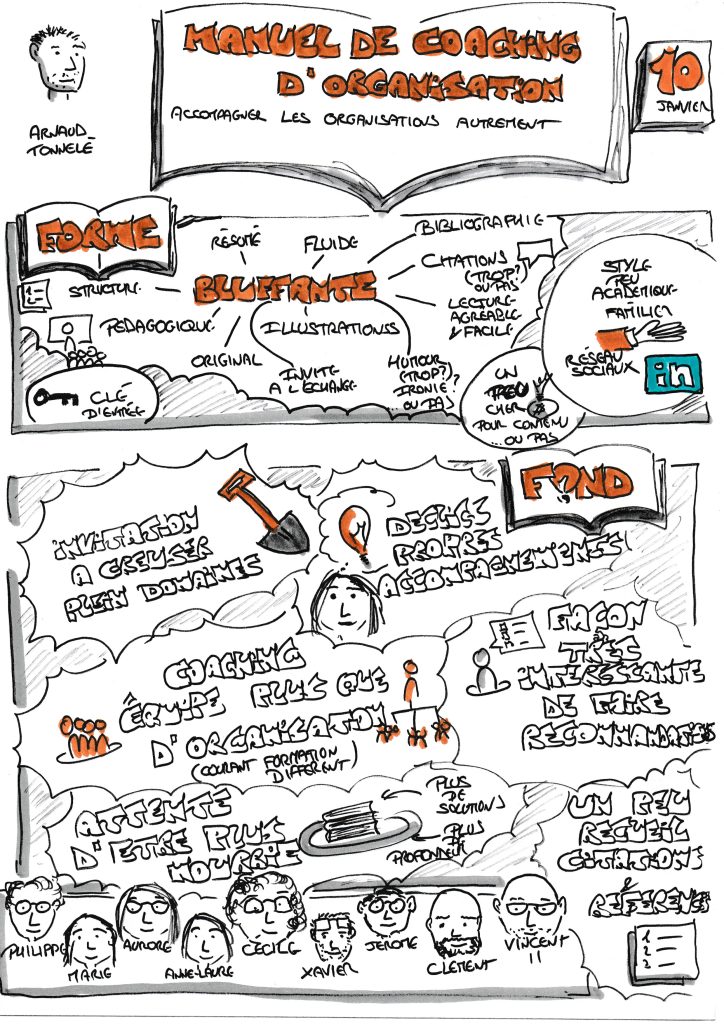 MANUEL DE COACHING
D'ORGANISATION
ACCOMPAGNER LES ORGANISATIONS AUTREMENT
10
JANVIER
ARNAUD_
TONNELÉ
FORME
RÉSUMÉ
FLUIDE
BIBLIOGRAPHIE
STRUCTURE
BLUFFANTE
CITATIONS
(TROP?)
OU PAS
LECTURE
AGREABLE
& FACILE
PEDAGOGIQUE
ILLUSTRATIONSS
ORIGINAL
INVITE
A L'ÉCHANGE
HUMOUR
(TROP?)
IRONIE?
... OU PAS
CLÉ
D'ENTRÉE
UN
PEU
CHER
POUR CONTENU
... OU PAS
STYLE
PEU
ACADÉMIQUE
FAMILIER
RÉSEAU
SOCIAUX
in
FOND
INVITATION
A CREUSER
PLEIN DOMAINES
DECLICS
PROPRES
ACCOMPAGNEMENTS
COACHING
ÉQUIPE PLUS QUE
D'ORGANISATION
(COURANT FORMATION
DIFFERENT)
FAÇON
TRÈS
INTÉRESSANTE
DE FAIRE
RECOMMANDATIONS
ATTENTE
D'ETRE PLUS
NOURRIE
PLUS
DE
SOLUTIONS
PLUS
DE
PROFONDEUR
UN PEU
RECUEIL
CITATIONS
&
RÉFÉRENCES
1
2
3
PHILIPPE
MARIE
AURORE
ANNE-LAURE
CÉCILE
XAVIER
JÉROME
CLÉMENT
VINCENT